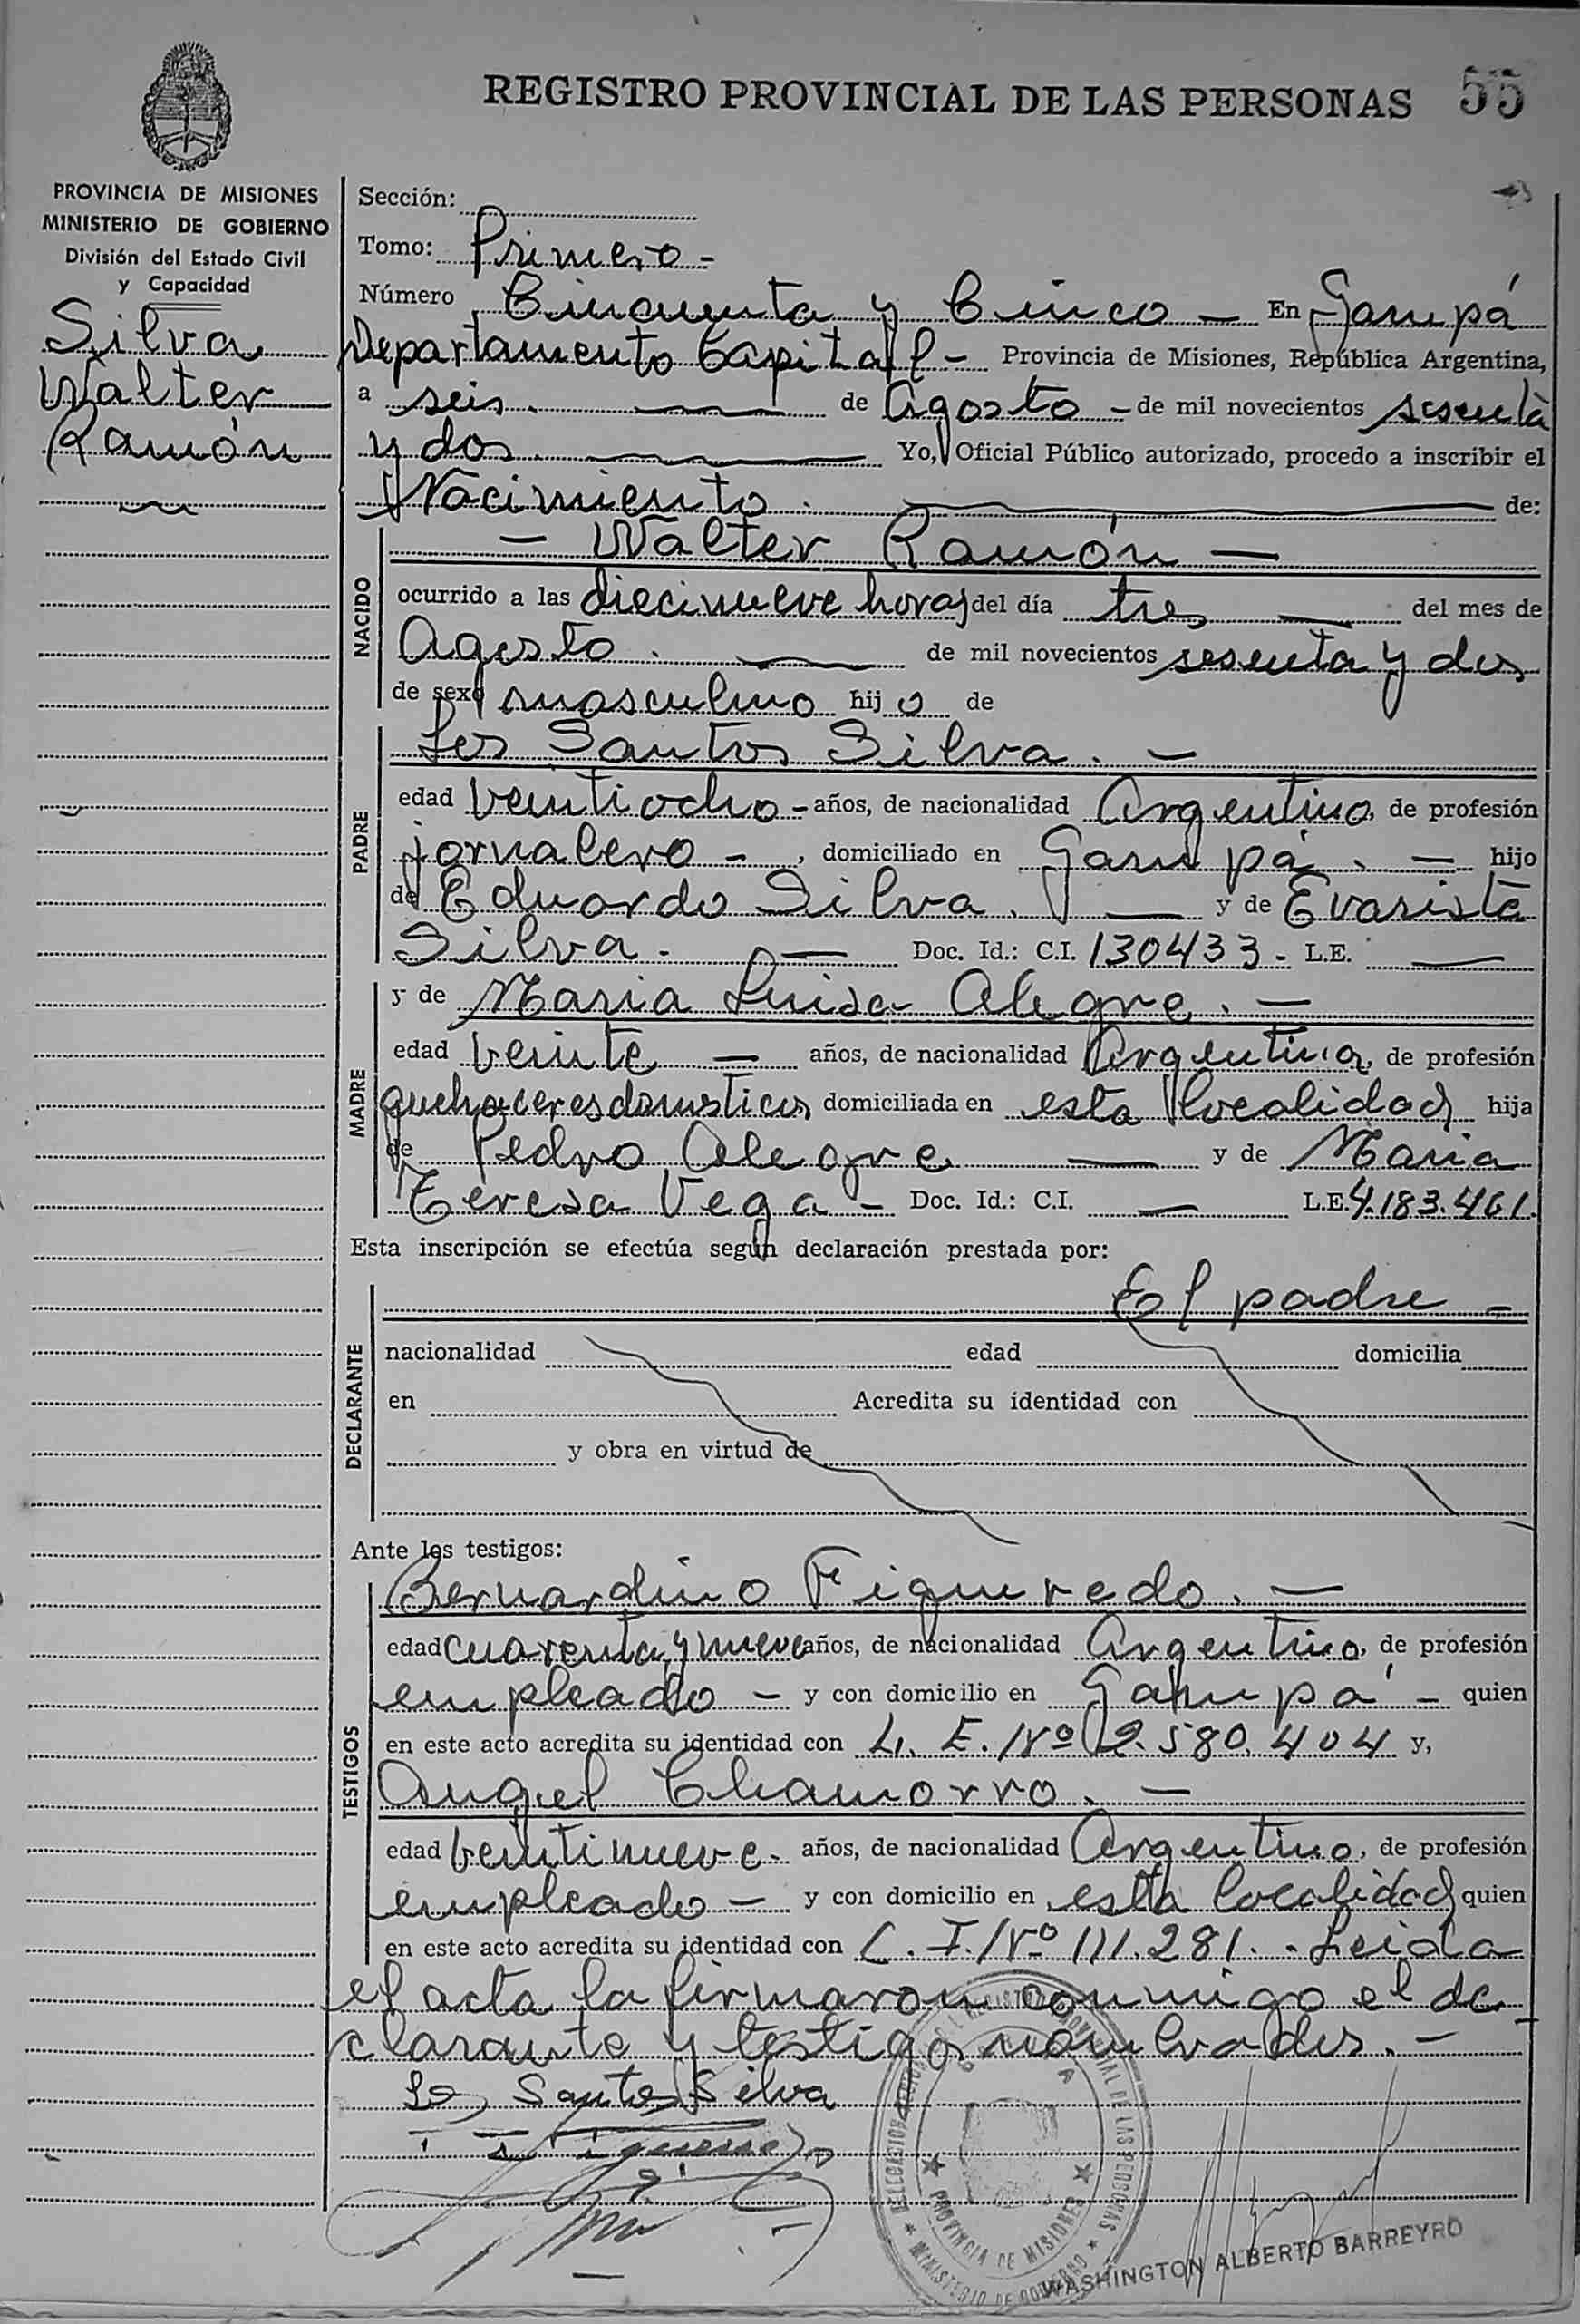 REGISTRO PROVINCIAL DE LAS PERSONAS 55
PROVINCIA DE MISIONES
MINISTERIO DE GOBIERNO
División del Estado Civil
y Capacidad
Silva
Walter
Ramón
Sección:
Tomo: Primero -
Número Cincuenta y Cinco - En Garupá
Departamento Capital - Provincia de Misiones, República Argentina,
a seis. de Agosto - de mil novecientos sesenta
y dos. Yo, Oficial Público autorizado, procedo a inscribir el
Nacimiento. de:
NACIDO
- Walter Ramón -
ocurrido a las diecinueve horas del día tres del mes de
Agosto. de mil novecientos sesenta y dos
de sexo masculino hijo de
PADRE
Los Santos Silva. -
edad veintiocho - años, de nacionalidad Argentino, de profesión
jornalero - , domiciliado en Garupá. - hijo
de Eduardo Silva. y de Evarista
Silva. - Doc. Id.: C.I. 130433 - L.E. -
MADRE
y de Maria Luisa Alegre. -
edad veinte - años, de nacionalidad Argentina, de profesión
quehaceres domesticos domiciliada en esta localidad hija
de Pedro Alegre - y de Maria
Teresa Vega - Doc. Id.: C.I. - L.E. 4.183.461.
Esta inscripción se efectúa según declaración prestada por:
DECLARANTE
El padre -
nacionalidad edad domicilia
en Acredita su identidad con
y obra en virtud de
Ante los testigos:
TESTIGOS
Bernardino Figueredo. -
edad cuarenta y nueve años, de nacionalidad Argentino, de profesión
empleado - y con domicilio en Garupá - quien
en este acto acredita su identidad con L. E. Nº 2.580.404 y,
Angel Chamorro. -
edad veintinueve. años, de nacionalidad Argentino, de profesión
empleado - y con domicilio en esta localidad quien
en este acto acredita su identidad con C. I. Nº 111.281. - Leida
el acta la firmaron conmigo el de
clarante y testigos nombrados. -
Los Santos Silva
PROVINCIA DE MISIONES
MINISTERIO DE GOBIERNO
WASHINGTON ALBERTO BARREYRO